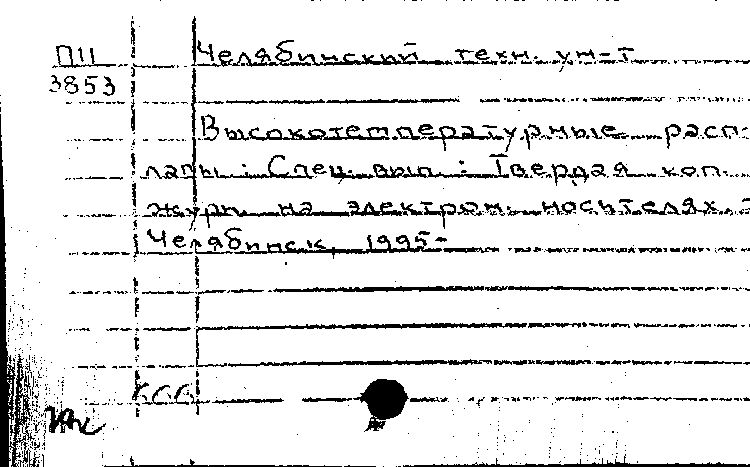 П11 Челябинский техн. ун-т
3853
Высокотемпературные расп-
лавы : Спец. вып. : Твердая коп.
журн. на электрон. носителях. -
Челябинск, 1995-